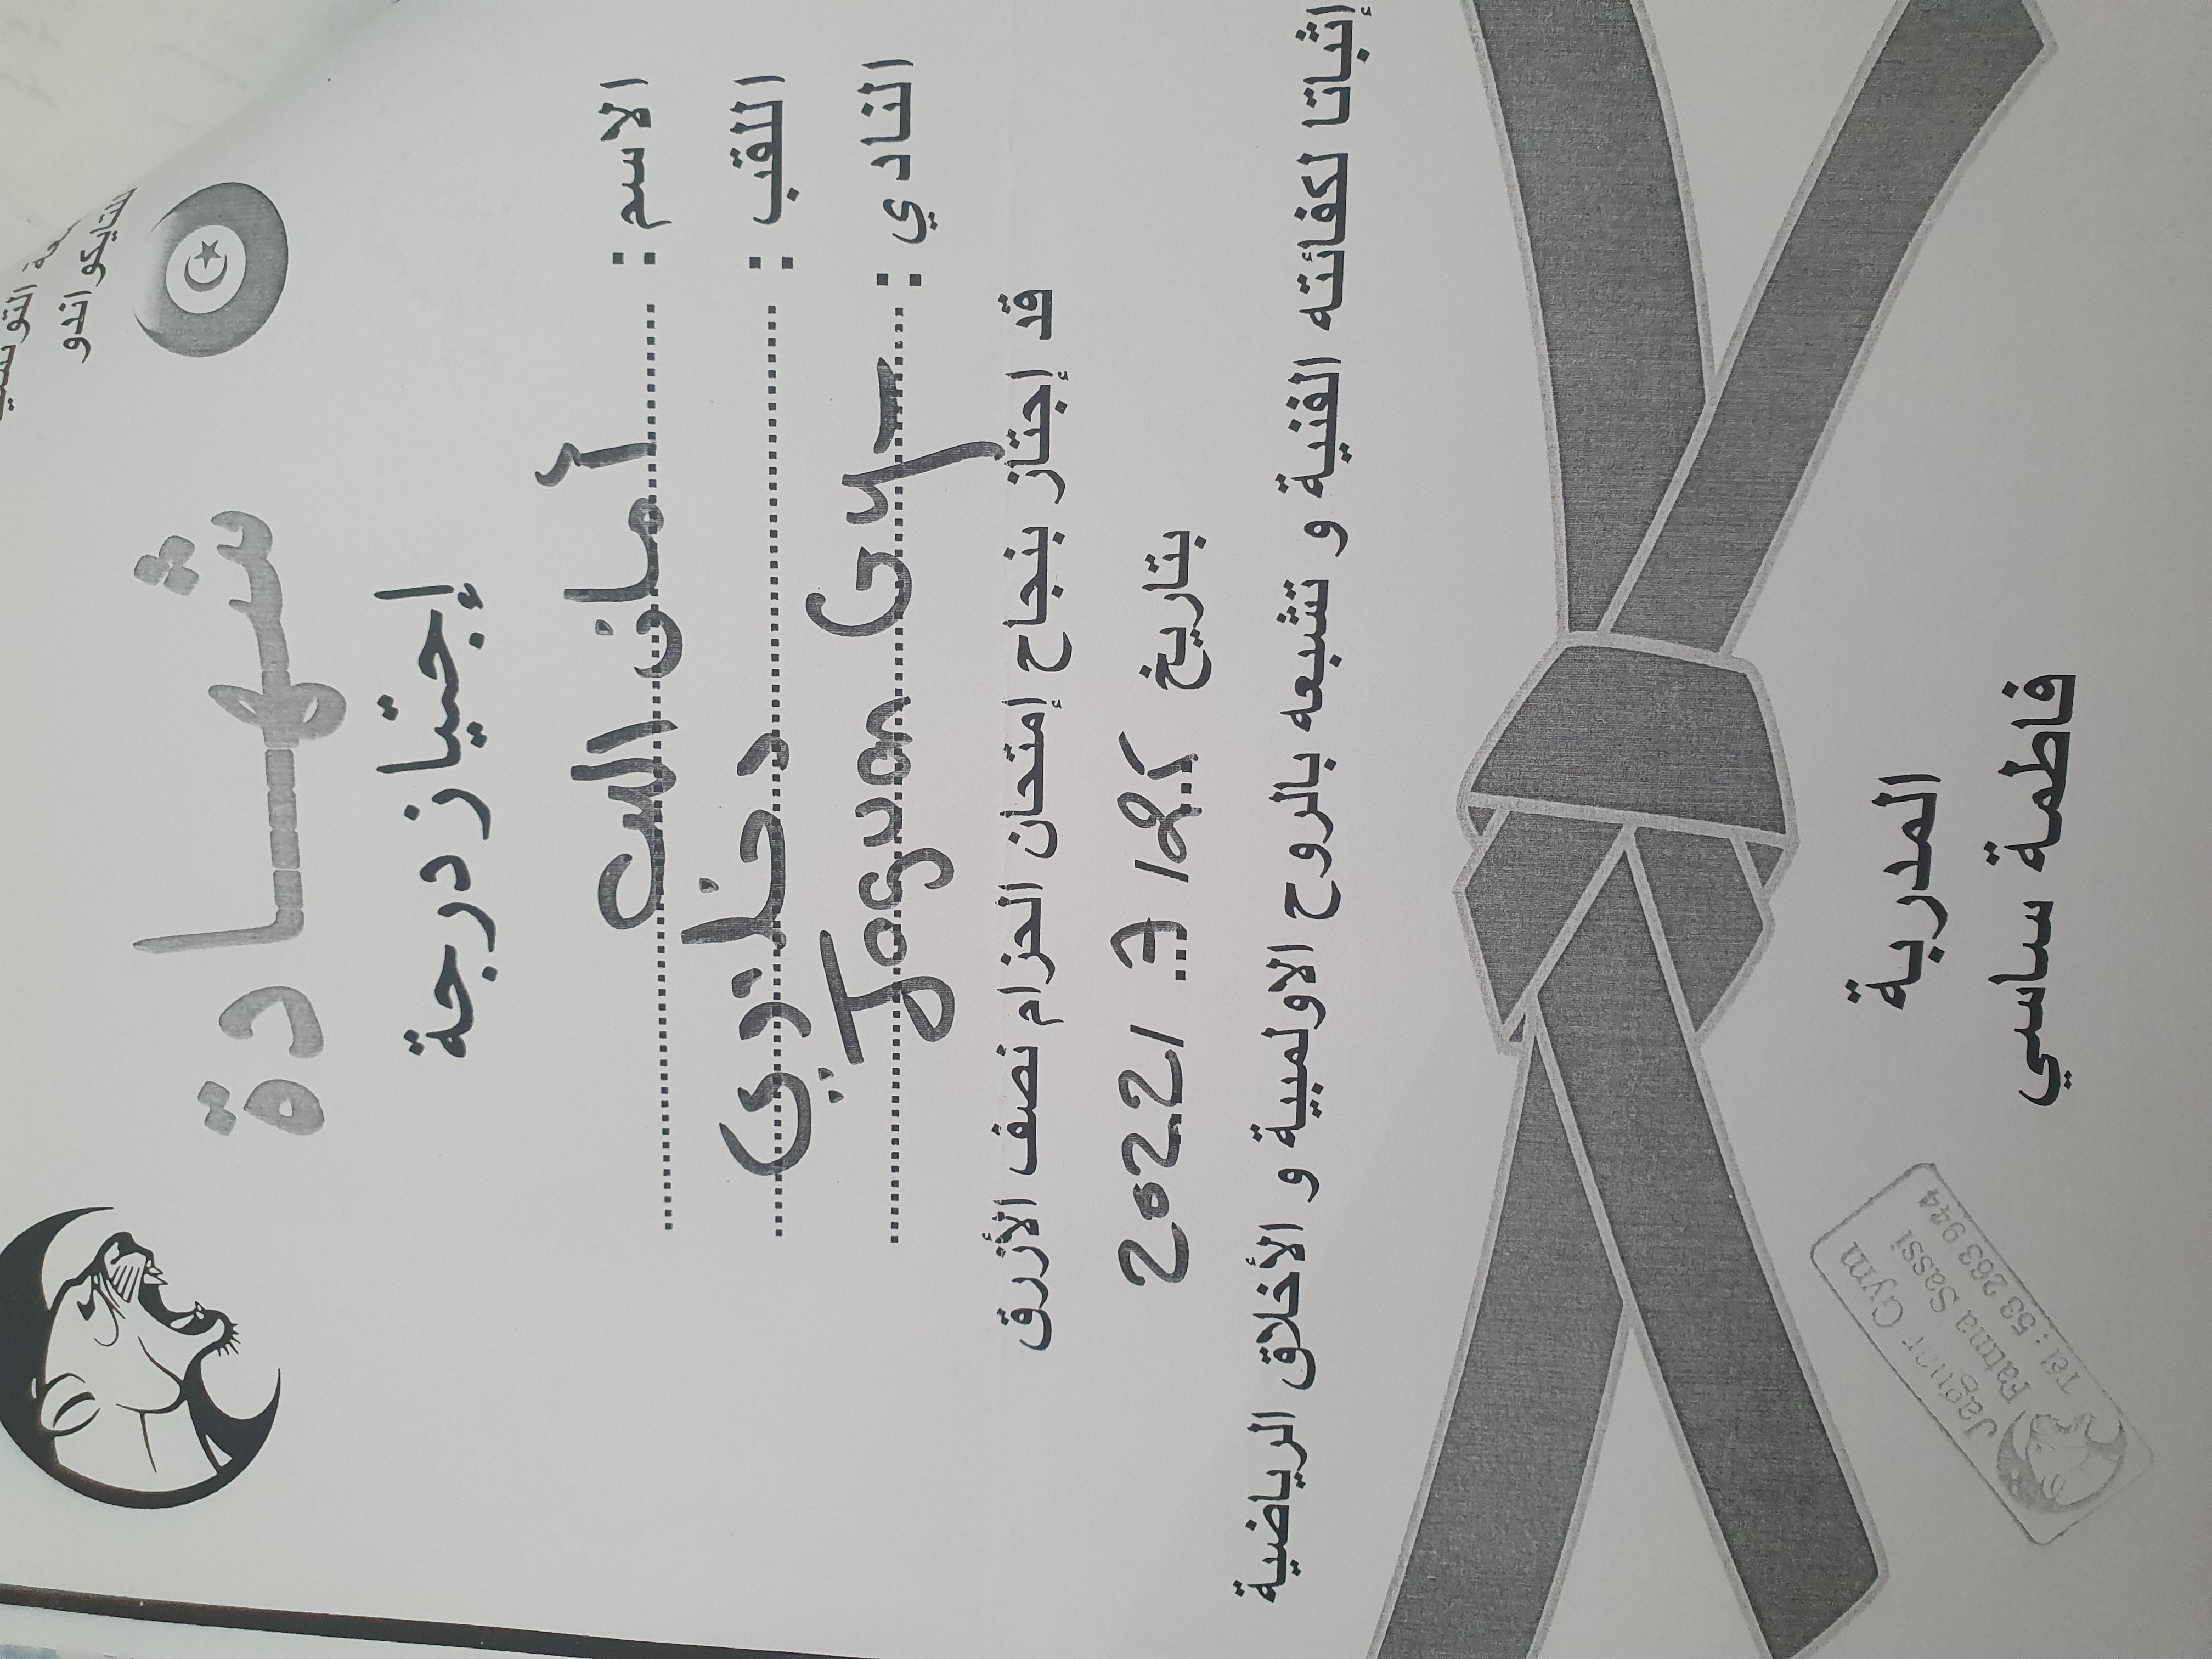 للتايكواندو
شهادة
إجتياز درجة
الاسم : أمان الله
اللقب : دخلاوي
النادي : Jaguar Gym
قد إجتاز بنجاح إمتحان الحزام نصف الأزرق
بتاريخ
2022/
إثباتا لكفائته الفنية و تشبعه بالروح الاولمبية و الأخلاق الرياضية
المدربة
فاطمة ساسي
Jaguar Gym
Fatma Sassi
Tél : 53 263 944